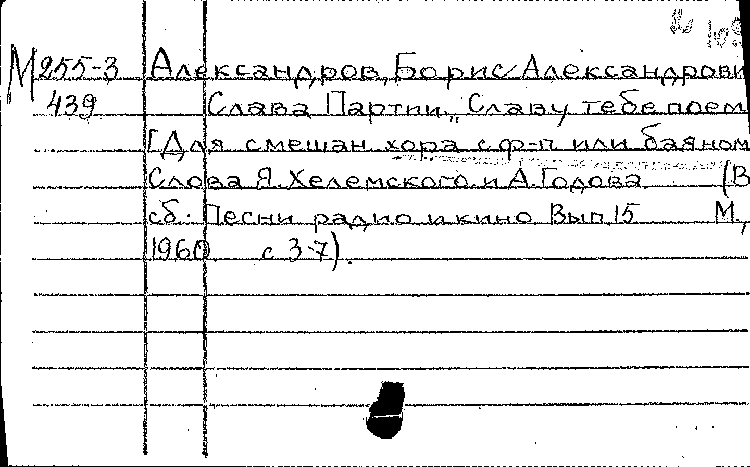 М 255-3 Александров, Борис Александрови
439 Слава Партии. „Славу тебе поем
[Для смешан хора с ф-п или баяном
Слова Я. Хелемского и А. Годова (В
сб: Песни радио и кино Вып. 15 М.,
1960 с 3-7).